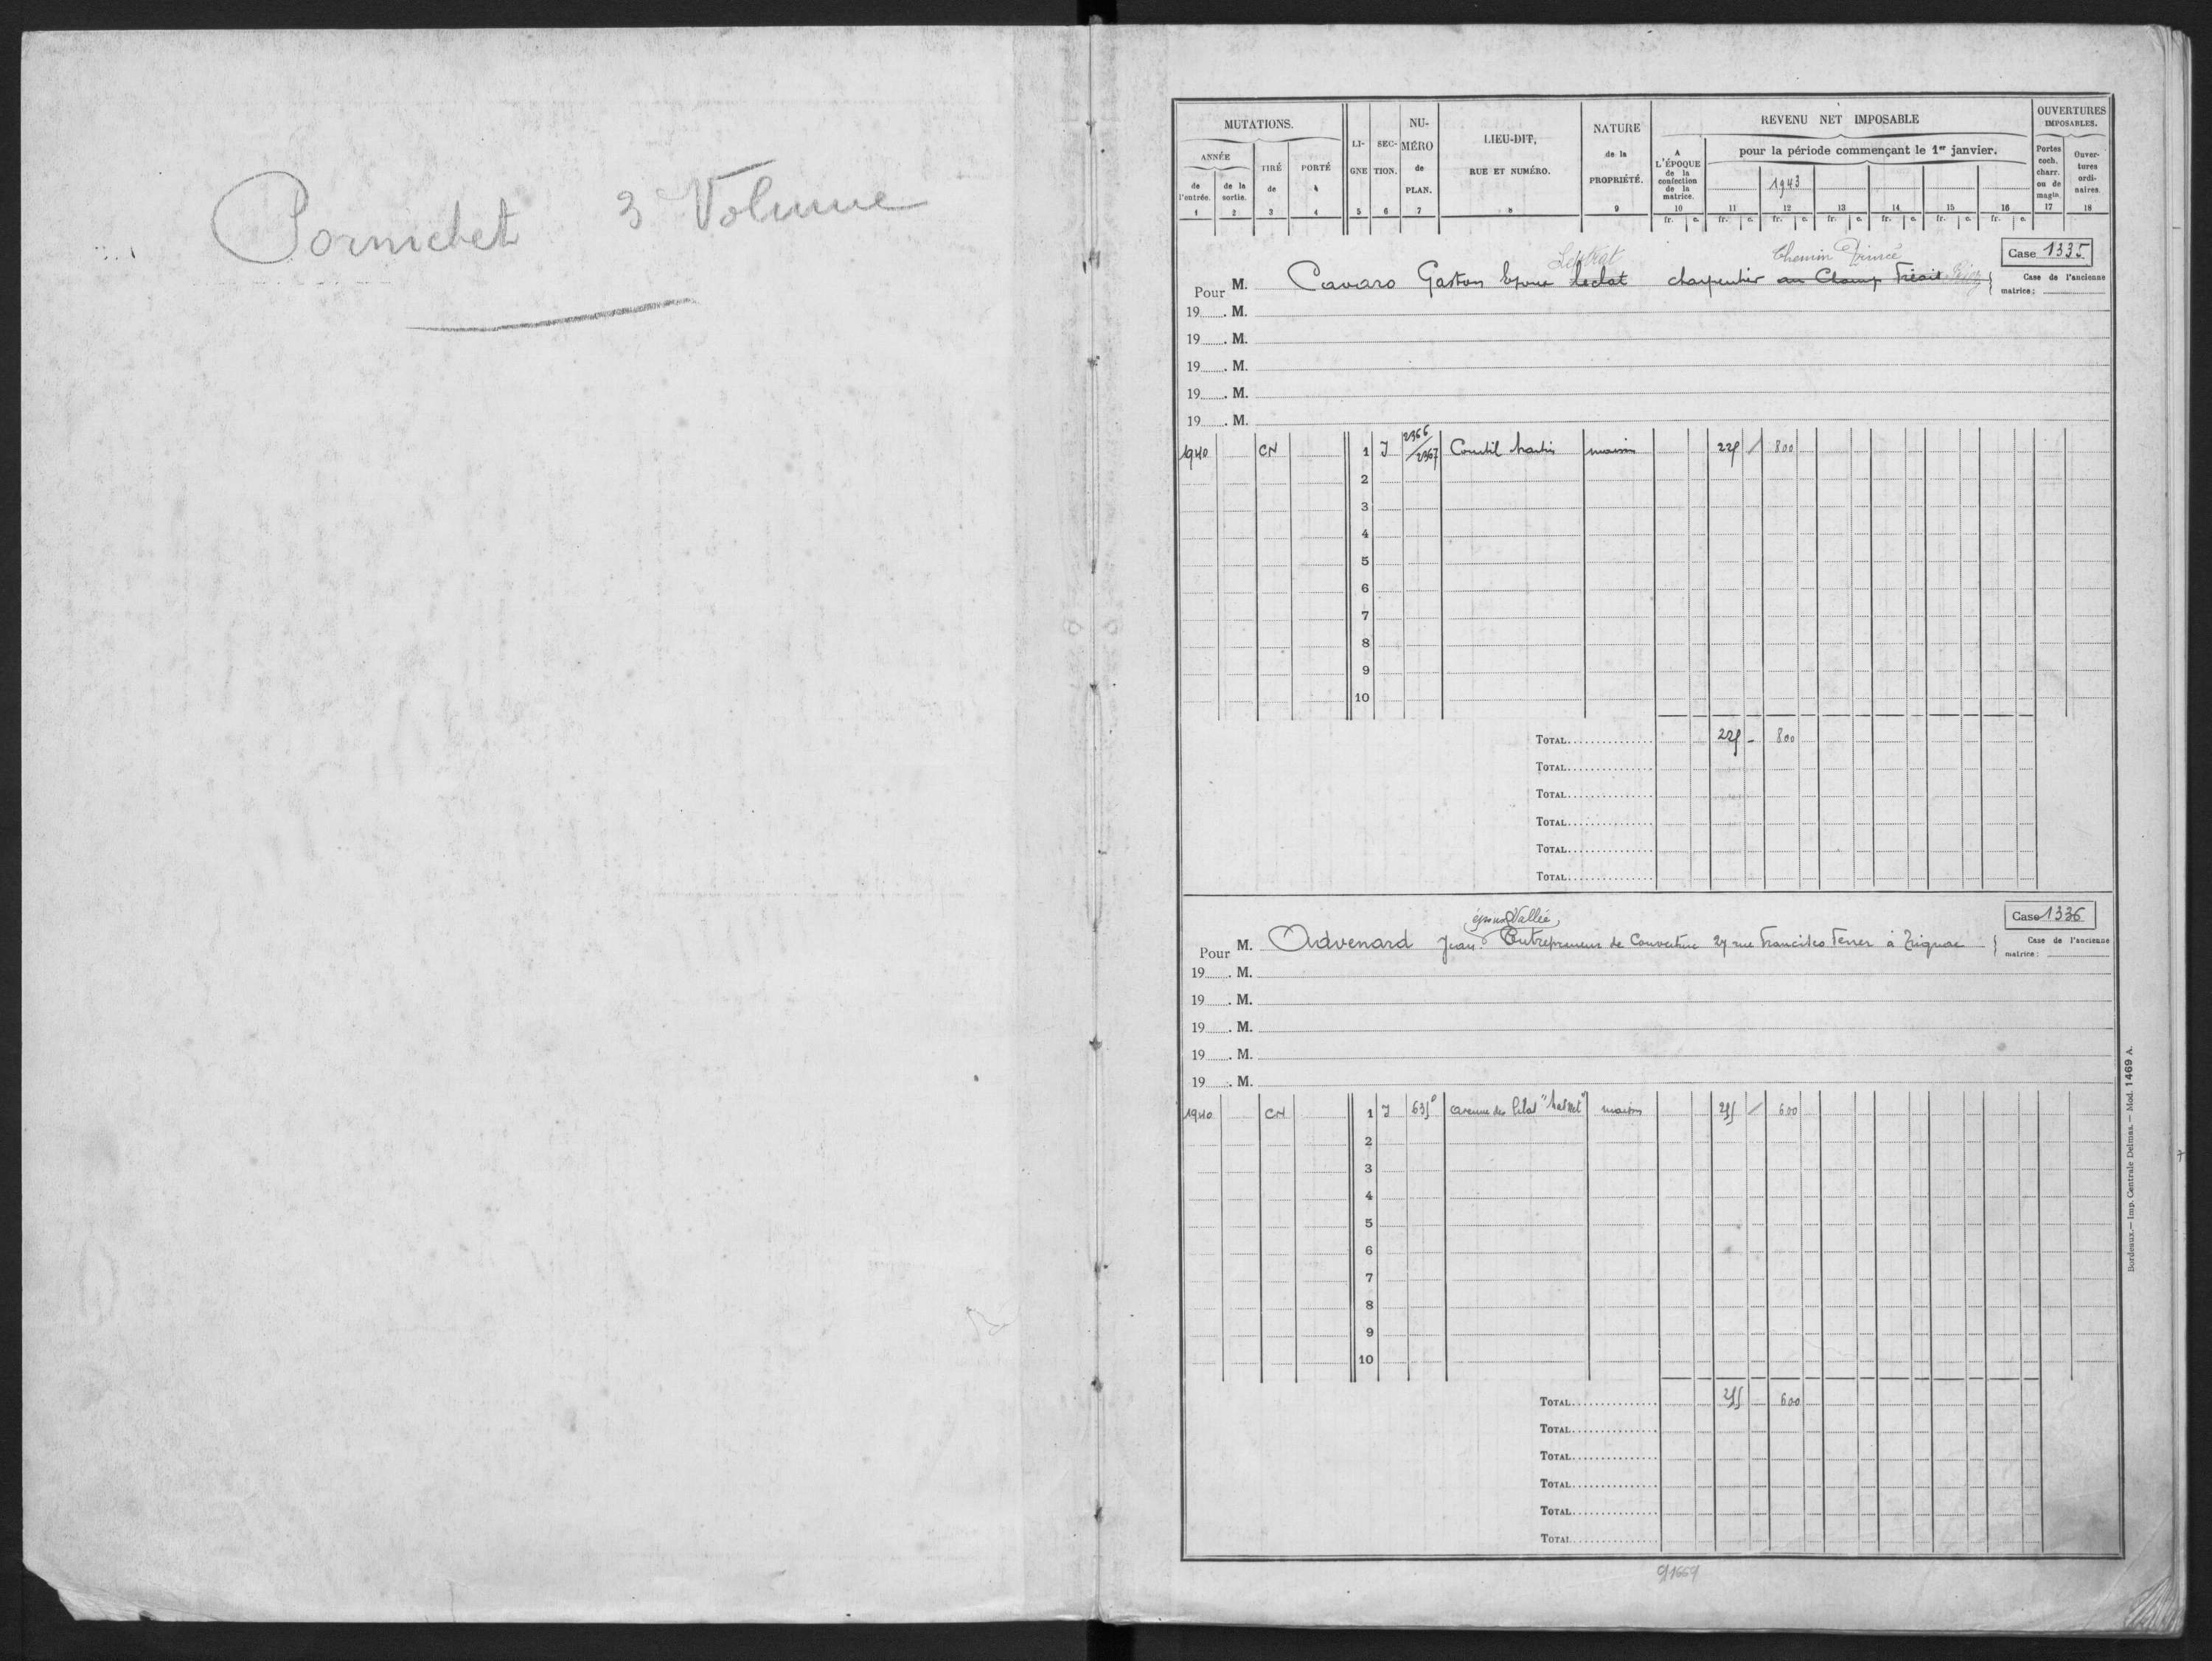 Pornichet 3 Volume
MUTATIONS.
ANNÉE
de l'entrée.
de la sortie.
TIRÉ de
PORTÉ à
LI-GNE
SEC-TION.
NU-MÉRO de PLAN.
LIEU-DIT, RUE ET NUMÉRO.
NATURE de la PROPRIÉTÉ.
REVENU NET IMPOSABLE
A L'ÉPOQUE de la confection de la matrice.
pour la période commençant le 1er janvier.
1943
OUVERTURES IMPOSABLES.
Portes coch. charr. ou de magin.
Ouver-tures ordi-naires
1 2 3 4 5 6 7 8 9 10 11 12 13 14 15 16 17 18
fr. c. fr. c. fr. c. fr. c. fr. c. fr. c. fr. c.
Chemin
Case 1335
Pour M. Cavaro Gaston Epoux charpentier au Champ
Case de l'ancienne matrice:
19 . M.
19 . M.
19 . M.
19 . M.
19 . M.
1940 CN 1 J 2366/2367 maison 225 / 800
2
3
4
5
6
7
8
9
10
TOTAL 225 - 800
TOTAL
TOTAL
TOTAL
TOTAL
TOTAL
époux Vallée
Case 1336
Pour M. Advenard Jean Entrepreneur de Couverture 27 rue Francisco Ferrer à Trignac
Case de l'ancienne matrice:
19 . M.
19 . M.
19 . M.
19 . M.
19 . M.
1940 CN 1 J 635 avenue des Lilas maison 255 / 600
2
3
4
5
6
7
8
9
10
TOTAL 255 - 600
TOTAL
TOTAL
TOTAL
TOTAL
TOTAL
Bordeaux.— Imp. Centrale Delmas.— Mod. 1469 A.